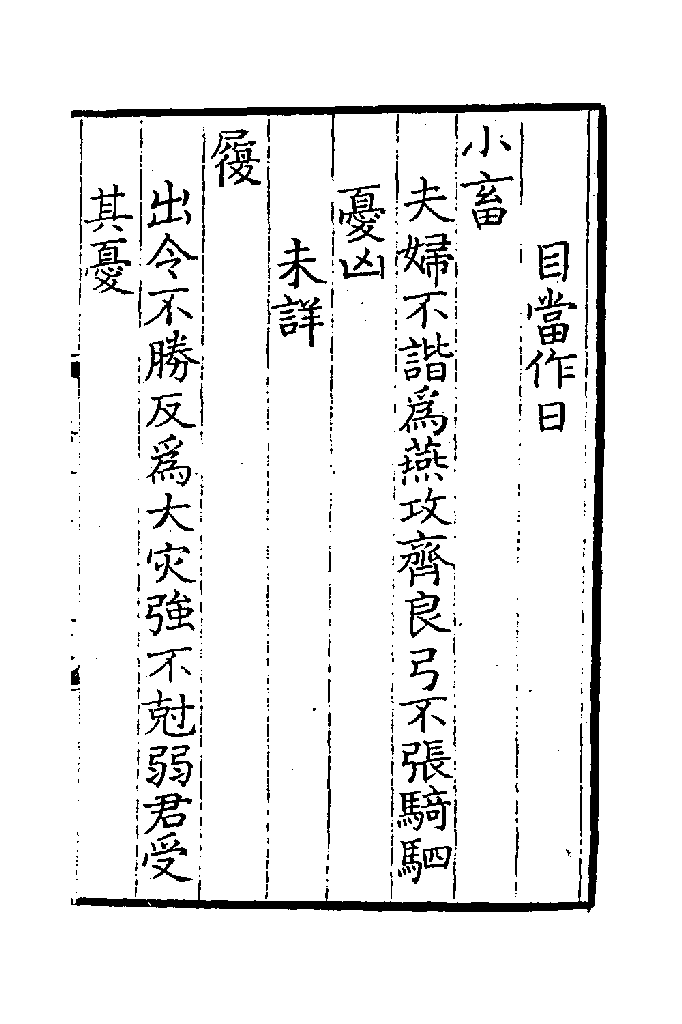 目當作日
小畜
夫婦不諧為燕攻齊良弓不張騎駟
憂凶
未詳
履
出令不勝反為大灾強不尅弱君受
其憂